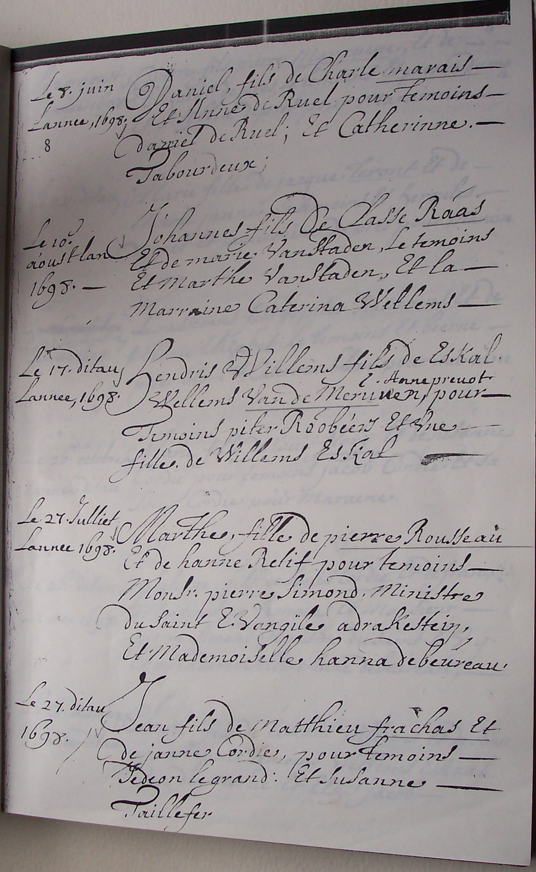 Le 8. juin
Lannee, 1698.
8
Daniel, fils de Charle marais
Et Anne de Ruel pour temoins
daniel de Ruel; Et Catherinne.
Tabourdeux;
Le 10e
aoust lan
1698.
Johannes fils De Classe Raas
Et de marie VanStaden, Le temoins
Et Marthe VanStaden, Et la
Marraine Caterina Wellems
Le 17. ditau
Lannee, 1698.
Hendris Willems fils de Eskal
Wellems Van de Merwen, pour
E. Anne prevot
Temoins piter Roobéers Et Une
fille. de Willems Eskal
Le 27. Julliet
Lannee 1698.
Marthe, fille de pierre Rousseau
Et de hanne Relif pour temoins
Monsr. pierre Simond. Ministre
du Saint E.Vangile adrakestein,
Et Mademoiselle hanna debeureau
Le 27. ditau
1698.
Jean fils de Matthieu frachas Et
de janne Cordie, pour temoins
Gedeon legrand. Et Susanne
Taillefer